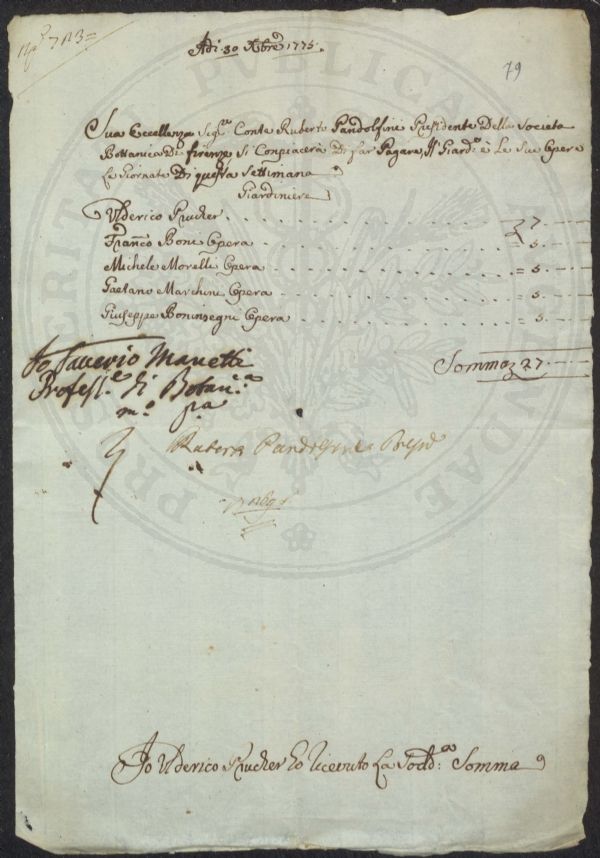 79
Adi 30 Xbre 1775.
Sua Eccellenza Sigre Conte Ruberto Pandolfini Presidente Della Societa
Bottanica Di firenze Si Conpiacerà Di far Pagare, Il Giardo è Le Sue Opere
Le Giornate Di questa Settimana
Giardiniere
Ulderico Prucher . . . . 7 . —
Franco Boni Opera . . . . = 5. —
Michele Morelli Opera . . . . = 5. —
Gaetano Marchini Opera . . . . = 5. —
Giuseppe Boninsegni Opera . . . . = 5. —
Somma 27. —
Io Saverio Manetti
Professre di Botanca
mo pa
Ruberto Pandolfini
Io Ulderico Prucher ho riceuto La Sodda: Somma
PROSCRITAE PUBLICAE